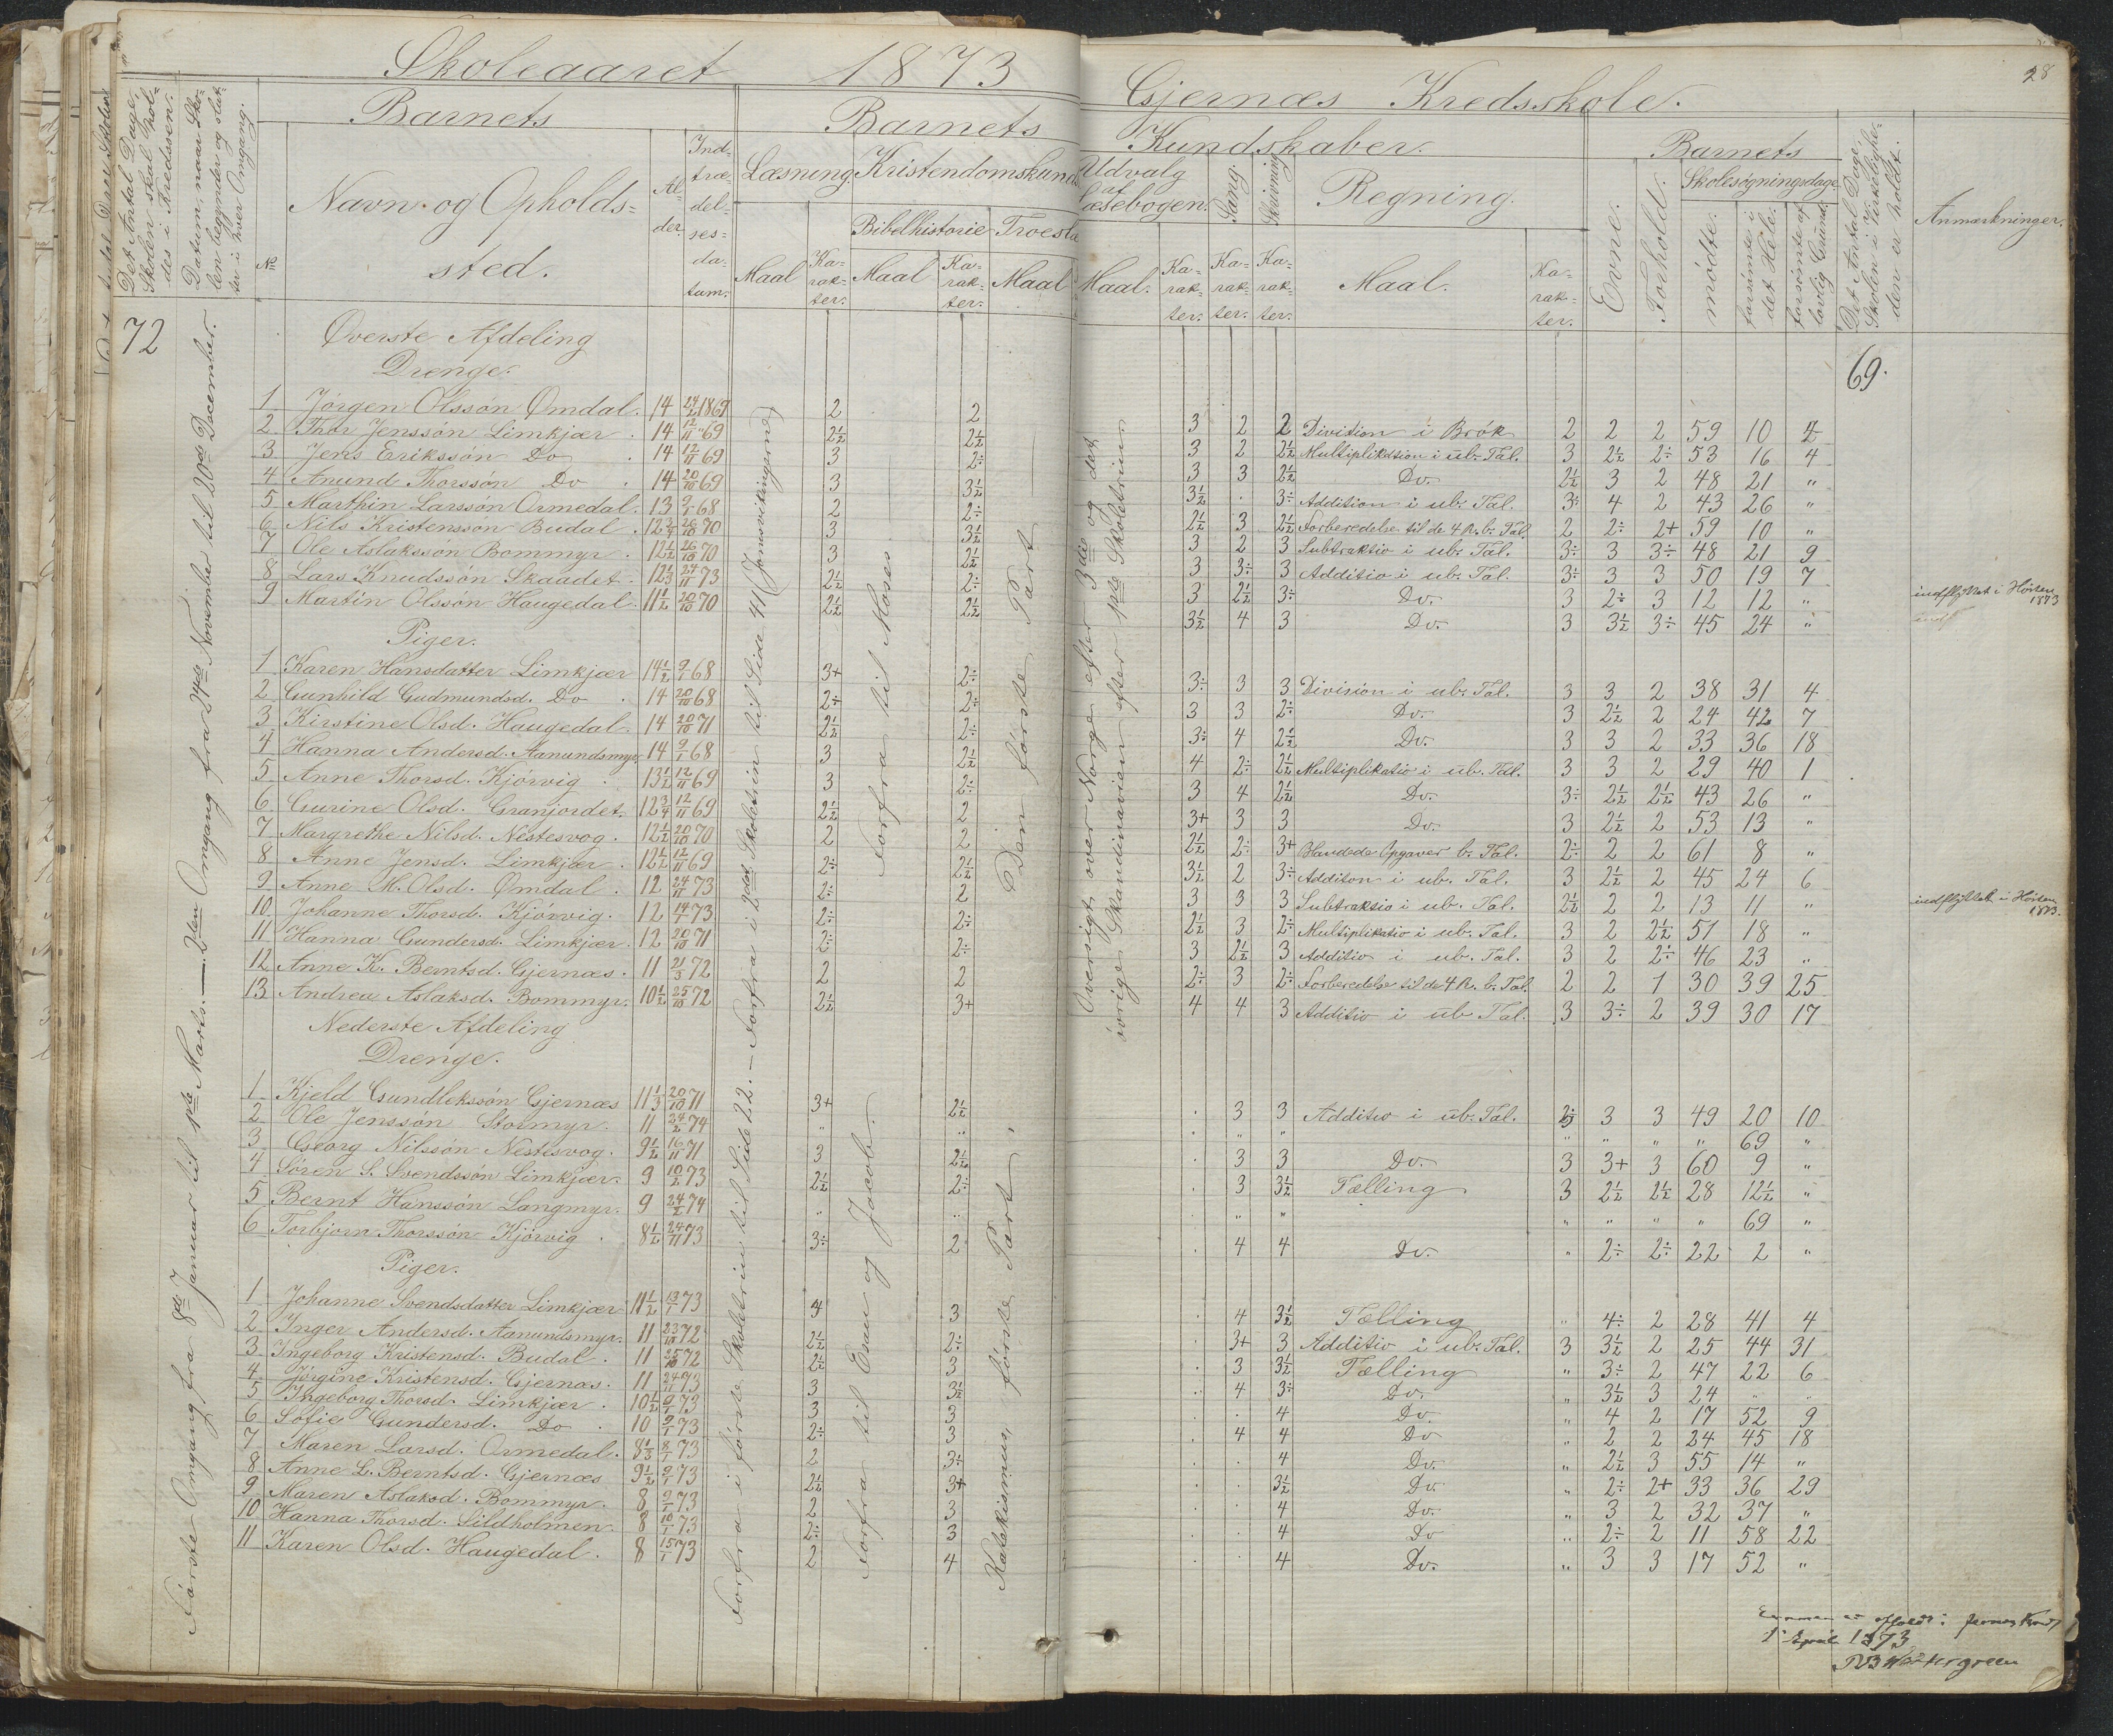 Skoleaaret 1873
Gjernæs Kredsskole.
28
Det Antal Dage, Skolen skal holdes i Kredsen.
Datum, naar Skolen begynder og slutter i hver Omgang.
Barnets
No
Navn og Opholdssted.
Alder.
Indtrædelsesdatum.
Barnets Kundskaber.
Læsning.
Maal
Karakter.
Kristendomskund
Bibelhistorie
Maal
Karakter.
Troeslæ
Maal
Udvalg af Læsebogen.
Maal.
Karakter.
Sang.
Karakter.
Skrivning
Karakter.
Regning.
Maal.
Karakter.
Barnets
Evne.
Forhold.
Skolesøgningsdage
mødte.
forsømte i det Hele.
forsømte af lovlig Grund.
Det Antal Dage, Skolen i Virkeligheden er holdt.
Anmærkninger.
72
Første Omgang fra 8de Januar til 1ste Marts. — 2den Omgang fra 24de November til 20de December.
Forfra i første Skoletrin til Side 22. — Forfra i 2det Skoletrin til Side 41 (Jomsvikingerne)
Forfra til Esau og Jacob.
Forfra til Moses
Katekismus, første Part.
Den første Part
Oversigt over Norge efter 3die og det
øvrige Skandinavien efter 1ste Skoletrin
69.
Øverste Afdeling
Drenge.
1 Jørgen Olssøn Omdal. 14 24/2 1869 2 2 3 2 2 Division i Brøk 2 2 2 59 10 4
2 Thor Jenssøn Limkjær . 14 12/11 69 2½ 2½ 3 2 2½ Multiplikation i ub. Tal. 3 2½ 2÷ 53 16 4
3 Jens Erikssøn Do . 14 12/11 69 3 2÷ 3 3 2½ Do. 2½ 3 2 48 21 "
4 Anund Thorssøn Do . 14 20/10 69 3 3½ 3½ . 3÷ Addition i ub. Tal. 3÷ 4 2 43 26 "
5 Marthin Larssøn Ormedal. 13 9/1 68 2 2÷ 2½ 3 2½ Forberedelse til de 4 R. b. Tal. 2 2÷ 2+ 59 10 "
6 Nils Kristenssøn Budal . 12¾ 20/10 70 3 3½ 3 2 3 Subtraktio i ub. Tal. 3÷ 3 3÷ 48 21 9
7 Ole Aslakssøn Bommyr . 12½ 26/10 70 3 2½ 3 3÷ 3 Additio i ub. Tal. 3÷ 3 3 50 19 7
8 Lars Knudssøn Skaadet . 12⅓ 24/11 73 2½ 2÷ 3 2½ 3÷ Do. 3 2÷ 3 12 12 " indflyttet i Høsten 1873
9 Martin Olssøn Haugedal. 11½ 20/10 70 2½ 2½ 3½ 4 3 Do. 3 3½ 3÷ 45 24 "
Piger.
1 Karen Hansdatter Limkjær 14½ 9/1 68 3+ 2÷ 3÷ 3 3 Division i ub. Tal. 3 3 2 38 31 4
2 Gunhild Gudmundsd. Do . 14 20/10 68 2÷ 2÷ 3 3 2÷ Do. 3 2½ 2 24 42 7
3 Kirstine Olsd. Haugedal. 14 20/10 71 2½ 2÷ 3÷ 4 2½ Do. 3 3 2 33 36 18
4 Hanna Andersd. Aanundsmyr. 14 9/1 68 3 2½ 4 2÷ 2½ Multiplikatio i ub. Tal. 3 3 2 29 40 1
5 Anne Thorsd. Kjørvig . 13½ 12/11 69 3 2÷ 3 4 2½ Do. 3÷ 2½ 2½ 43 26 "
6 Gurine Olsd. Granjordet. 12¾ 12/11 69 2½ 2 3+ 3 3 Do. 3 2½ 2 53 13 "
7 Margrethe Nilsd. Nestesvog. 12½ 20/10 70 2 2 2½ 2÷ 3+ Blandede Opgaver b. Tal. 2÷ 2 2 61 8 "
8 Anne Jensd. Limkjær . 12½ 12/11 69 2÷ 2½ 3½ 2 3÷ Additon i ub. Tal. 3 2½ 2 45 24 6
9 Anne M. Olsd. Omdal . 12 24/11 73 2÷ 2 3 3 3 Subtraksio i ub. Tal. 2½ 2 2 13 11 " indflyttet i Høsten 1873.
10 Johanne Thorsd. Kjørvig. 12 14/1 73 2÷ 2÷ 2½ 3 2÷ Multiplikatio i ub. Tal. 3 2 2½ 51 18 "
11 Hanna Gundersd. Limkjær. 12 20/10 71 2÷ 2÷ 3 2½ 3 Additio i ub. Tal. 3 2 2÷ 46 23 "
12 Anne K. Berntsd. Gjernæs. 11 21/3 72 2 2 2÷ 3 2÷ Forberedelse til de 4 R. b. Tal. 2 2 1 30 39 25
13 Andrea Aslaksd. Bommyr. 10½ 25/10 72 2½ 3+ 4 4 3 Additio i ub Tal. 3 3÷ 2 39 30 17
Nederste Afdeling
Drenge.
1 Kjeld Gundlekssøn Gjernæs 11⅓ 20/10 71 3+ 2½ . 3 3 Additio i ub. Tal. 3 3 49 20 10
2 Ole Jenssøn Stormyr. 11 24/2 74 " " . " " " " " " 69 "
3 Georg Nilssøn Nestesvog. 9½ 16/11 71 3 2½ . 3 3 Do. 3 3+ 3 60 9 "
4 Søren S. Svendssøn Limkjær. 9 10/2 73 2½ 2÷ . 3 3½ Tælling 3 2½ 2½ 28 12½ "
5 Bernt Hanssøn Langmyr. 9 24/2 74 " " . " " " " " " 69 "
6 Torbjørn Thorssøn Kjørvig . 8½ 24/11 73 3÷ 2 . 4 4 Do. " 2÷ 2÷ 22 2 "
Piger.
1 Johanne Svendsdatter Limkjær 11½ 13/1 73 4 3 . 4 3½ Tælling " 4÷ 2 28 41 4
2 Inger Andersd. Aanundsmyr. 11 23/10 72 2½ 2÷ . 3+ 3 Additio i ub. Tal. 3 3½ 2 25 44 31
3 Ingeborg Kristensd. Budal . 11 25/10 72 2½ 3 . 3 3½ Tælling " 3÷ 2 47 22 6
4 Jørgine Kristensd. Gjernæs. 11 24/11 73 3 3½ . 4 3÷ Do. " 3½ 3 24 " "
5 Ingeborg Thorsd. Limkjær . 10½ 9/1 73 3 3 . . 4 Do. " 4 2 17 52 9
6 Sofie Gundersd. Do . 10 9/1 73 2÷ 3 . 4 4 Do " 2 2 24 45 18
7 Maren Larsd. Ormedal. 8⅓ 8/1 73 2 3÷ . . 4 Do. " 2½ 3 55 14 "
8 Anne L. Berntsd. Gjernæs 9½ 9/1 73 2½ 3+ . . 3½ Do " 2÷ 2+ 33 36 29
9 Maren Aslaksd. Bommyr. 8 9/1 73 2 3 . . 4 Do. " 3 2 32 37 "
10 Hanna Thorsd. Sildholmen. 8 10/1 73 2÷ 3 . . 4 Do " 2÷ 2 11 58 22
11 Karen Olsd. Haugedal. 8 15/1 73 2 4 . . 4 Do. " 3 3 17 52 "
Examen er afholdt i
1 April 1873